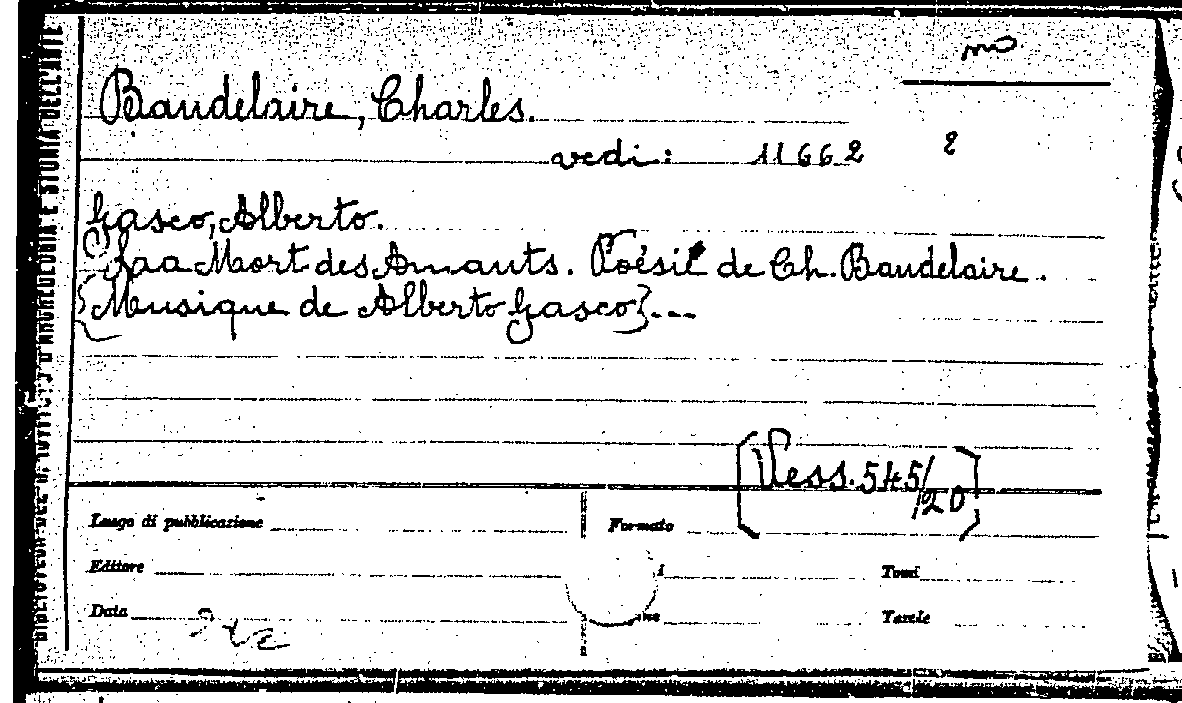 Baudelaire, Charles.
vedi: 11662 2
Gasco, Alberto.
Laa Mort des Amants. Poésie de Ch. Baudelaire.
{Musique de Alberto Gasco}---
[Vess. 545/20]
Luogo di pubblicazione
Formato
Editore
Tomi
Data
Tavole
BIBLIOTECA DEL R. ISTITUTO D'ARCHEOLOGIA E STORIA DELL'ARTE